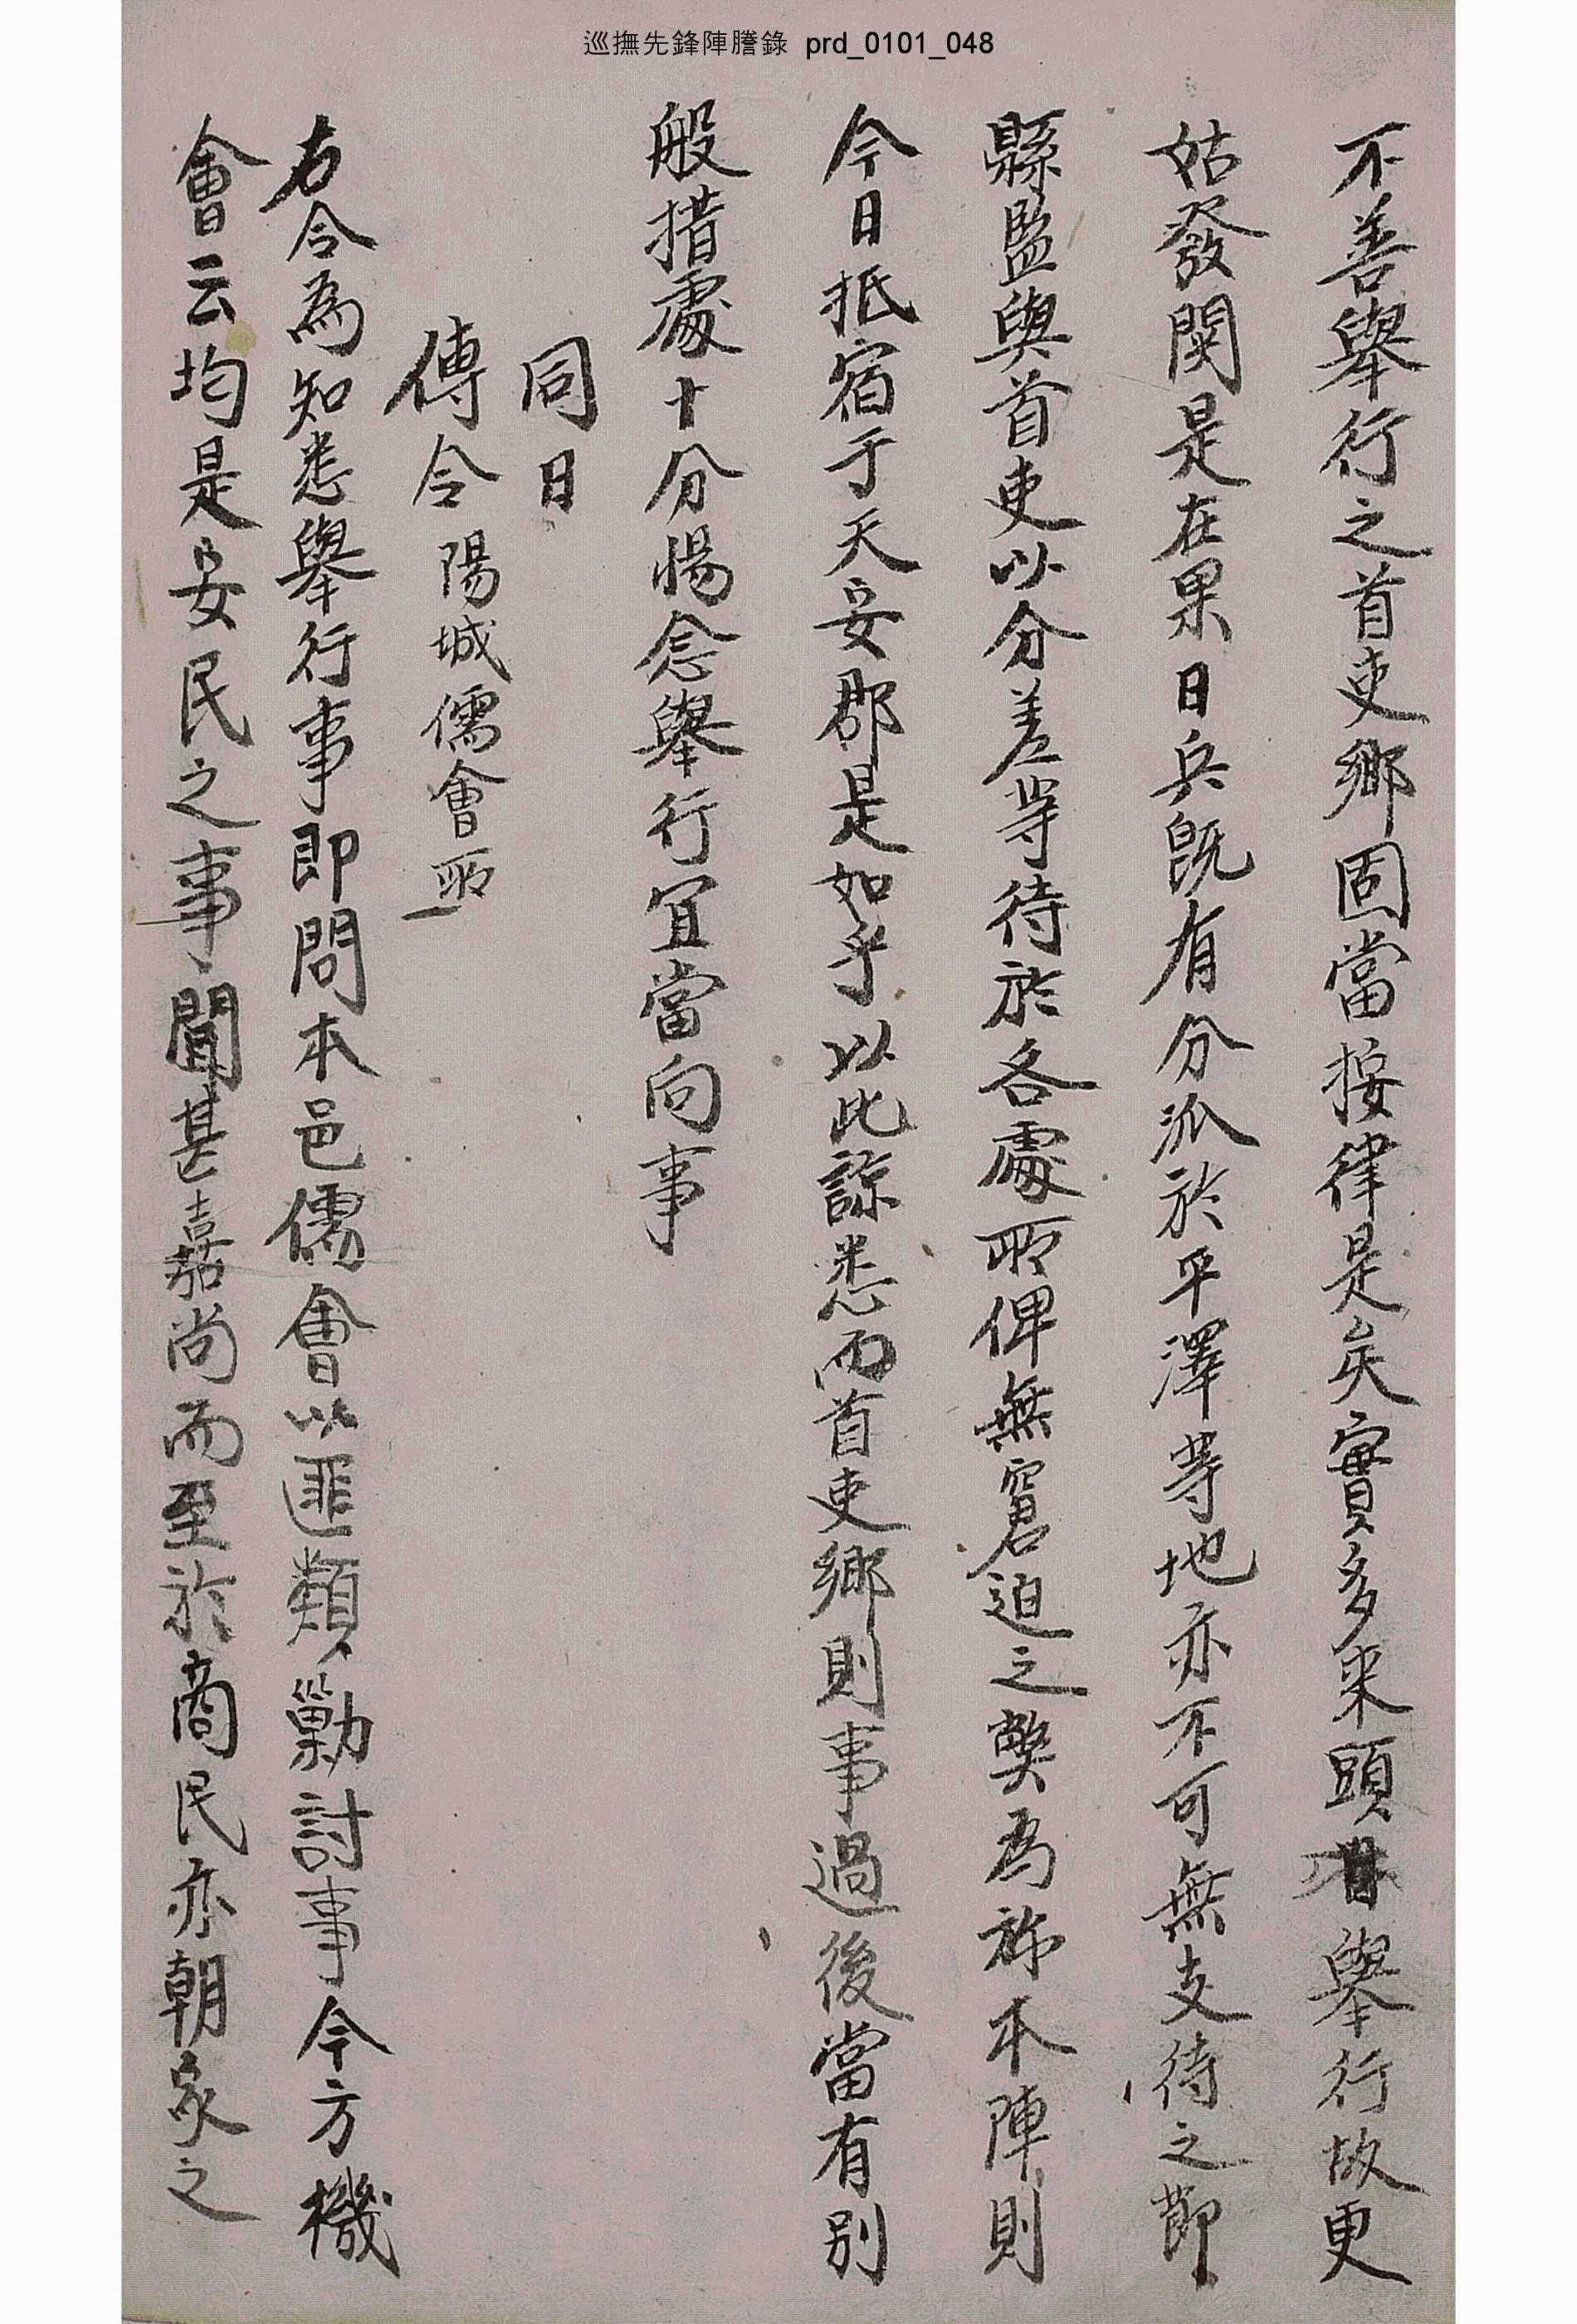 巡撫先鋒陣謄錄 prd_0101_048
不善舉行之首吏鄕固當按律是矣實多來頭舉行故更
姑發関是在果日兵旣有分派於平澤等地亦不可無支待之節
縣監與首吏以分差等待於各處所俾無窘迫之獘爲旀本陣則
今日抵宿于天安郡是如乎以此諒悉而首吏鄕則事過後當有別
般措處十分惕念舉行宜當向事
同日
傳令陽城儒會所
右令爲知悉舉行事即問本邑儒會以匪類勦討事今方機
會云均是安民之事聞甚嘉尚而至於商民亦朝家之